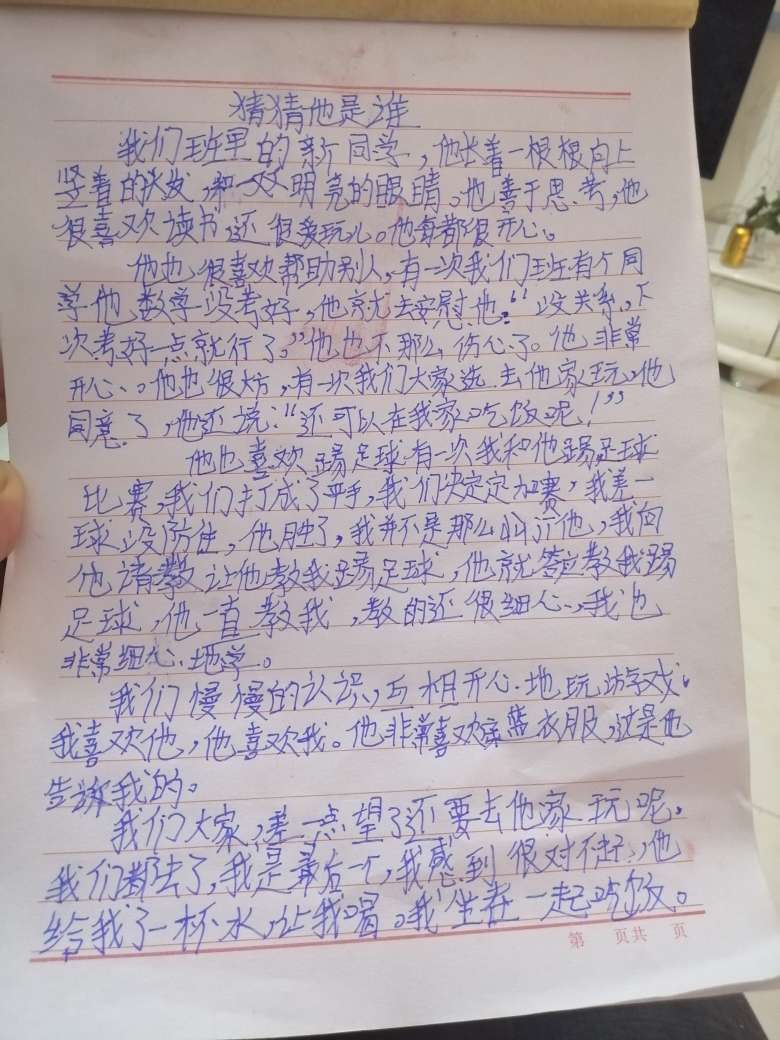 猜猜他是谁
我们班里的新同学，他长着一根根向上
竖着的头发，和一双明亮的眼睛。他善于思考，他
很喜欢读书，还很爱玩儿。他每都很开心。
他也很喜欢帮助别人，有一次我们班有个同
学他数学没考好，他就去安慰他：“没关系，下
次考好一点就行了。”他也不那么伤心了。他非常
开心。他也很大方，有一次我们大家选去他家玩。他
同意了，他还说：“还可以在我家吃饭呢！”
他也喜欢踢足球有一次我和他踢足球
比赛，我们打成了平手，我们决定定加赛，我差一
球没防住，他胜了，我并不是那么叫他，我向
他请教让他教我踢足球，他就答应教我踢
足球，他一直教我，教的还很细心，我也
非常细心地学。
我们慢慢的认识，互相开心地玩游戏。
我喜欢他，他喜欢我。他非常喜欢穿蓝衣服，这是他
告诉我的。
我们大家，差一点望了还要去他家玩呢。
我们都去了，我是最后一个，我感到很对不起，他
给我了一杯水，让我喝。我坐在一起吃饭。
第 页共 页